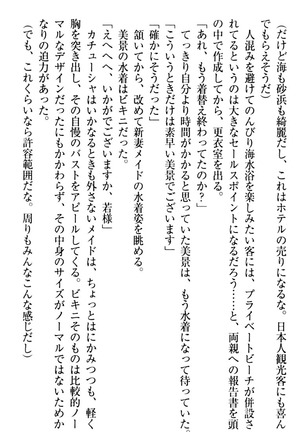 （だけど海も砂浜も綺麗だし、これはホテルの売りになるな。日本人観光客にも喜ん
でもらえそうだ）
人混みを避けてのんびり海水浴を楽しみたい客には、プライベートビーチが併設さ
れてるというのは大きなセールスポイントになるだろう……と、両親への報告書を頭
の中で作成してから、更衣室を出る。
「あれ、もう着替え終わってたのか？」
てっきり自分より時間がかかると思っていた美景は、もう水着になって待っていた。
「こういうときだけは素早い美景でございます」
「確かにそうだった」
頷いてから、改めて新妻メイドの水着姿を眺める。
美景の水着はビキニだった。
「えへへ、いかがでございますか、若様」
カチューシャはいかなるときも外さないメイドは、ちょっとはにかみつつも、軽く
胸を突き出し、その自慢のバストをアピールしてくる。ビキニそのものは比較的ノー
マルなデザインだったにもかかわらず、その中身のサイズがノーマルではないためか
なりの迫力があった。
（でも、これくらいなら許容範囲だな。周りもみんなこんな感じだし）